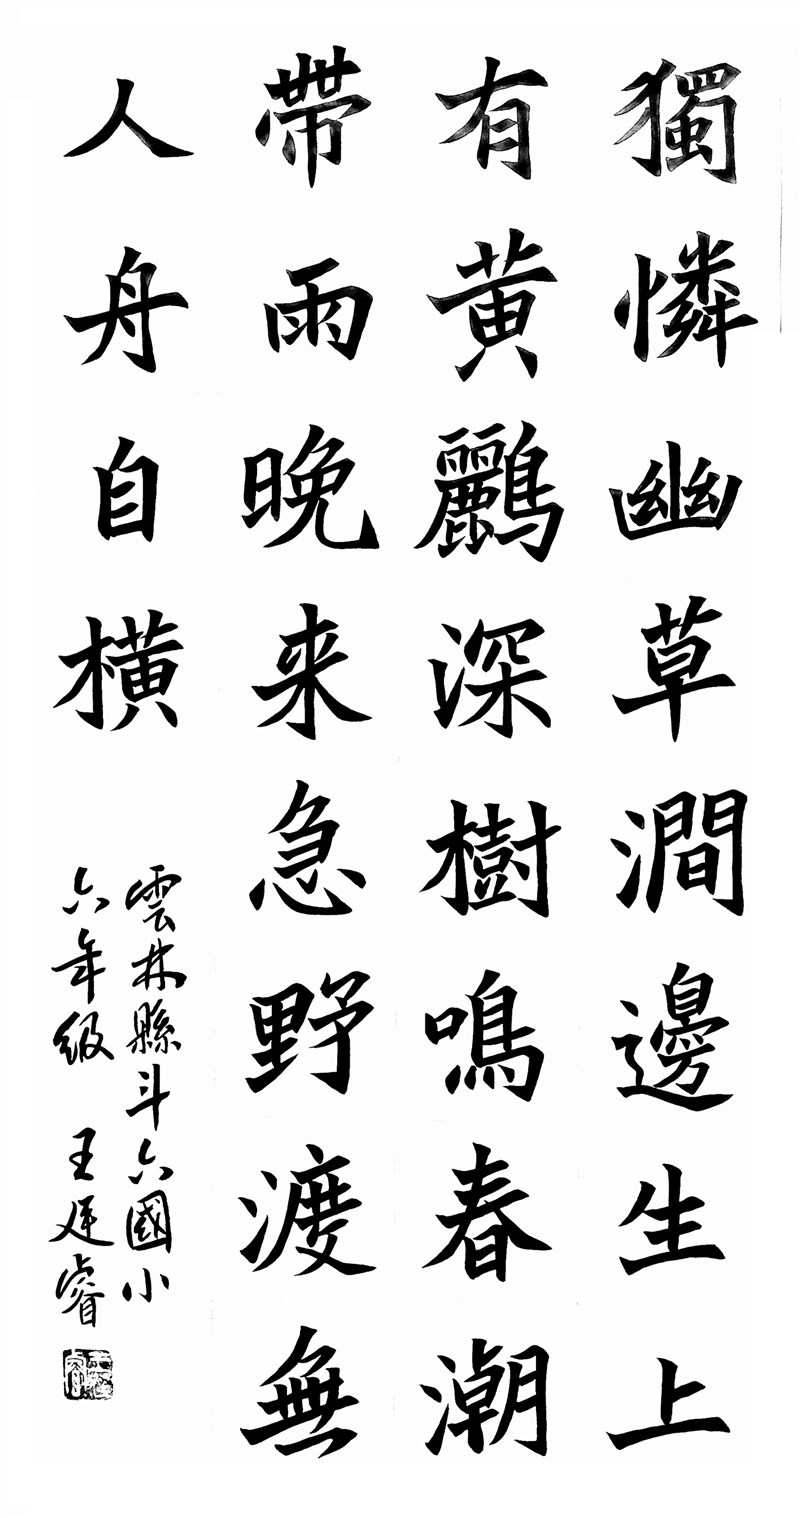 獨憐幽草澗邊生上
有黄鸝深樹鳴春潮
帶雨晚来急野渡無
人舟自橫
雲林縣斗六國小
六年級 王廷睿